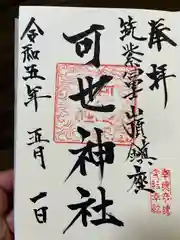 奉拝
筑紫富士山頂鎮座
可也神社
令和五年 五月 一日